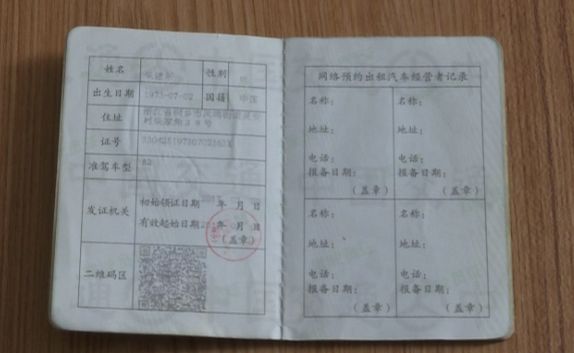 姓名 性别
出生日期 1973-07-02 国籍 中国
住址
证号
准驾车型 A2
发证机关 初始领证日期 年 月 日
有效起始日期 年 月 日
(盖章)
二维码区
网络预约出租汽车经营者记录
名称： 名称：
地址： 地址：
电话： 电话：
报备日期： 报备日期：
(盖章) (盖章)
名称： 名称：
地址： 地址：
电话： 电话：
报备日期： 报备日期：
(盖章) (盖章)